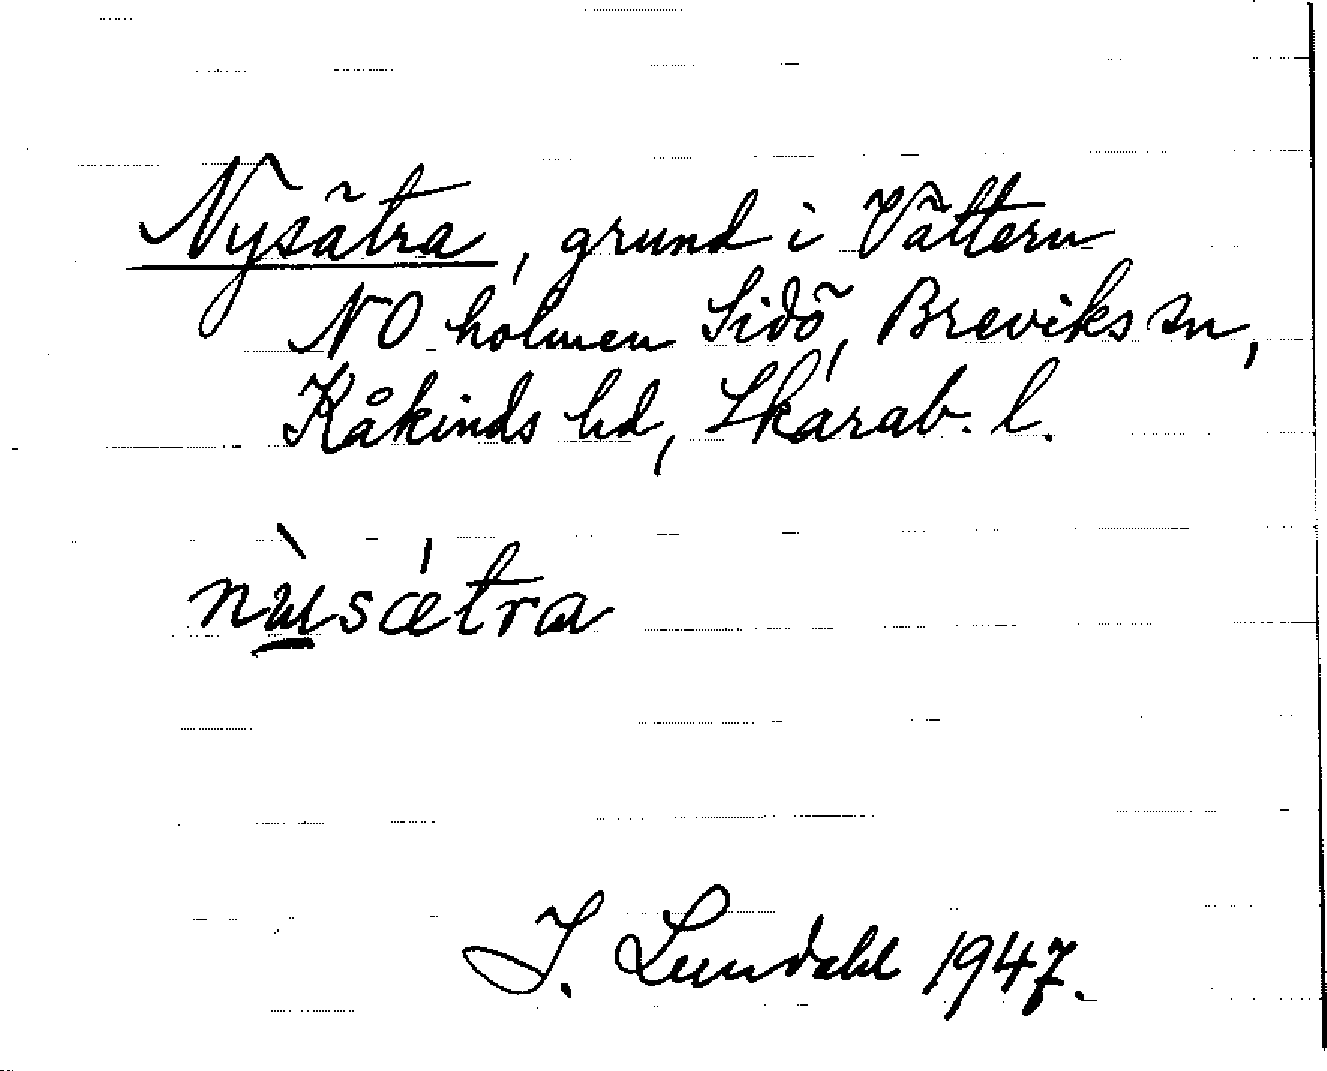 Nysätra, grund i Vättern
NO holmen Sidö, Breviks sn,
Kåkinds hd, Skarab. l.
nùsǽtra
I. Lundahl 1947.